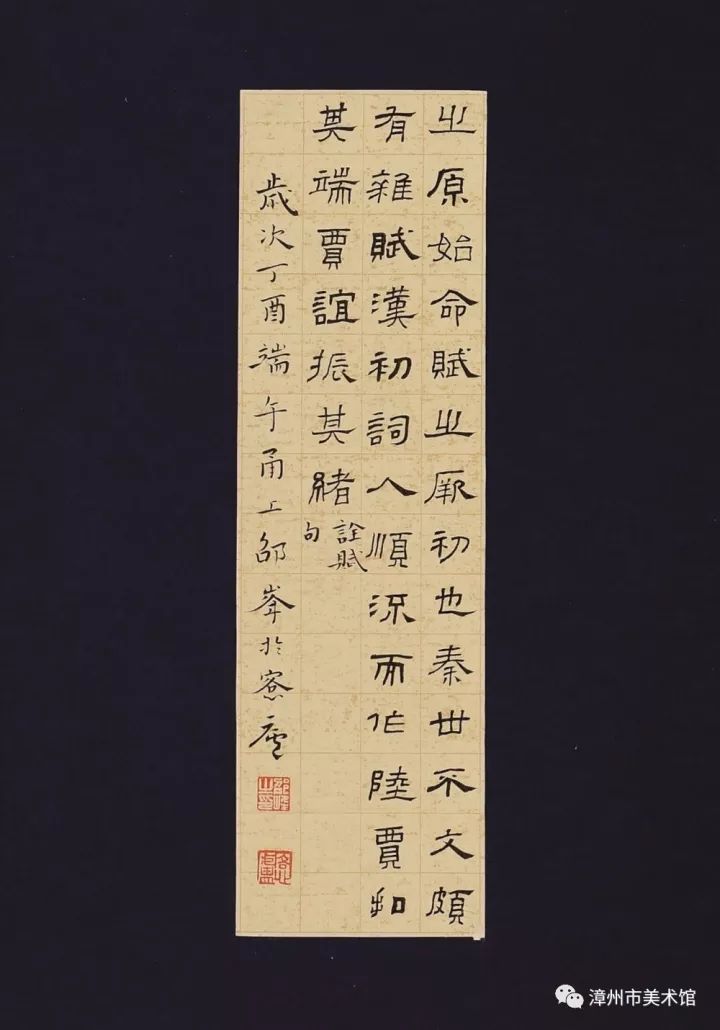 之原始命賦之厥初也秦世不文頗
有雜賦漢初詞人順流而作陸賈扣
其端賈誼振其緒
詮賦
句
歲次丁酉端午甬上邵峯於寮廬
邵峰之印
漳州市美术馆